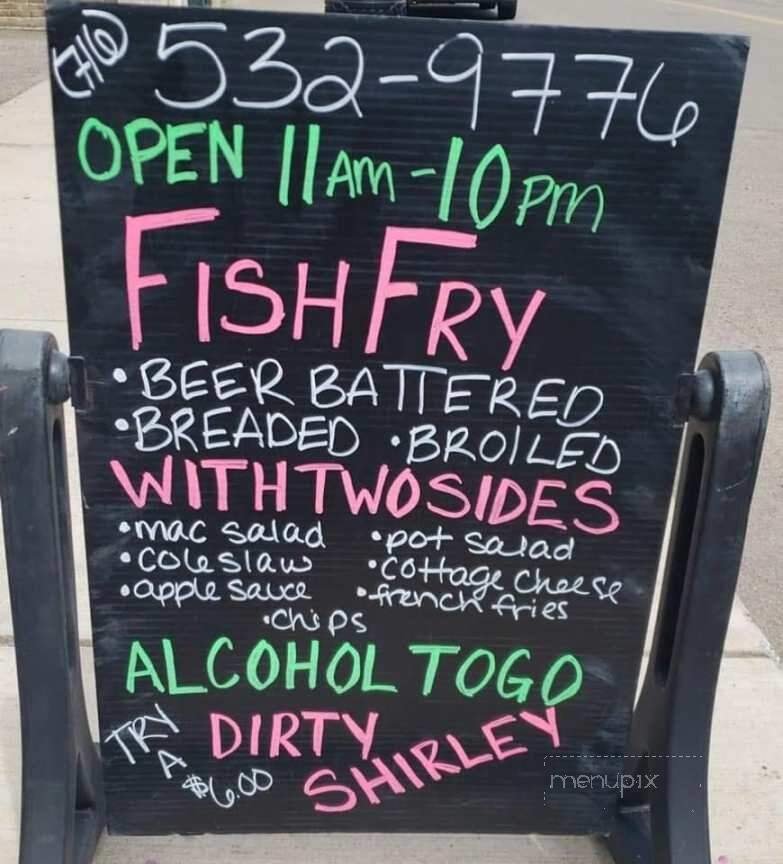 (716) 532-9776
OPEN 11AM-10PM
FISH FRY
• BEER BATTERED
• BREADED • BROILED
WITH TWO SIDES
• mac salad • pot salad
• coleslaw • cottage cheese
• apple sauce • french fries
• chips
ALCOHOL TO GO
TRY A DIRTY SHIRLEY
$6.00
menupix